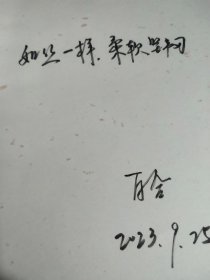 如丝一样，柔软坚韧
百合
2023.9.25